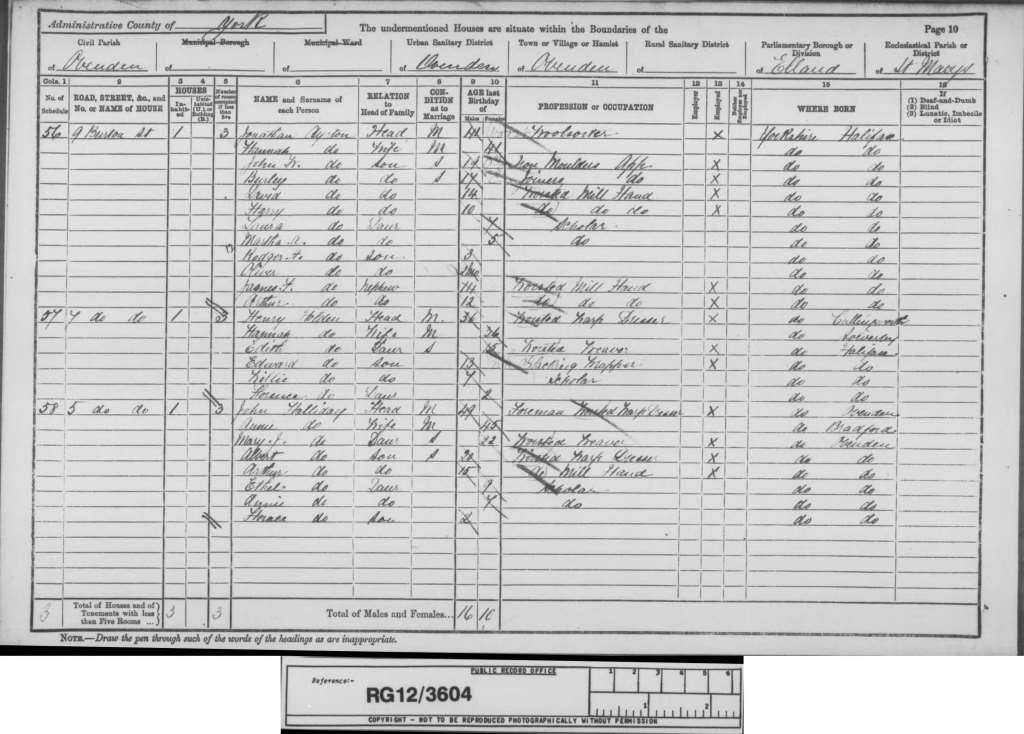 Administrative County of York
The undermentioned Houses are situate within the Boundaries of the
Page 10
Civil Parish
Municipal Borough
Municipal Ward
Urban Sanitary District
Town or Village or Hamlet
Rural Sanitary District
Parliamentary Borough or Division
Ecclesiastical Parish or District
of Ovenden of of of Ovenden of Ovenden of of Elland of St Marys
Cols. 1 2 3 4 5 6 7 8 9 10 11 12 13 14 15 16
No. of Schedule ROAD, STREET, &c., and No. or NAME of HOUSE HOUSES NAME and Surname of each Person RELATION to Head of Family CONDITION as to Marriage AGE last Birthday of PROFESSION or OCCUPATION Employer Employed WHERE BORN If
(1) Deaf-and-Dumb
(2) Blind
(3) Lunatic, Imbecile or Idiot
Males Females
56 9 1 3 Jonathan Head M 41 X Yorkshire Halifax
Hannah do Wife M 41 do do
John do son S 19 Iron Moulders App X do do
do do S 17 Joiners do X do do
David do do 14 Worsted Mill Hand X do do
Harry do do 10 do do do X do do
Laura do Daur 7 Scholar do do
Martha A. do do 5 do do do
do son 3 do do
Oliver do do do do
James do Nephew 14 Worsted Mill Hand X do do
Arthur do do 12 do do do X do do
57 7 do do 1 3 Henry Holden Head M. 36 Worsted Warp Dresser X do
Hannah do Wife M 36 do
Edith do Daur S 15 Worsted Weaver X do Halifax
Edward do son 13 Blacking Wrapper X do do
Willie do do 7 Scholar do do
Florence do Daur 2 do do
58 5 do do 1 3 John Halliday Head M 49 Foreman Worsted Warp Dresser X do Ovenden
Annie do Wife M 45 do Bradford
Mary J. do Daur S 22 Worsted Weaver X do Ovenden
Albert do son S 20 Worsted Warp Dresser X do do
Arthur do do 15 do Mill Hand X do do
Ethel do Daur 9 Scholar do do
Annie do do 7 do do do
Horace do son 2 do do
3 Total of Houses and of Tenements with less than Five Rooms ... 3 3 Total of Males and Females... 16 10
NOTE.—Draw the pen through such of the words of the headings as are inappropriate.
PUBLIC RECORD OFFICE
Reference:-
RG12/3604
1 2 3 4 5 6
1 2
COPYRIGHT - NOT TO BE REPRODUCED PHOTOGRAPHICALLY WITHOUT PERMISSION